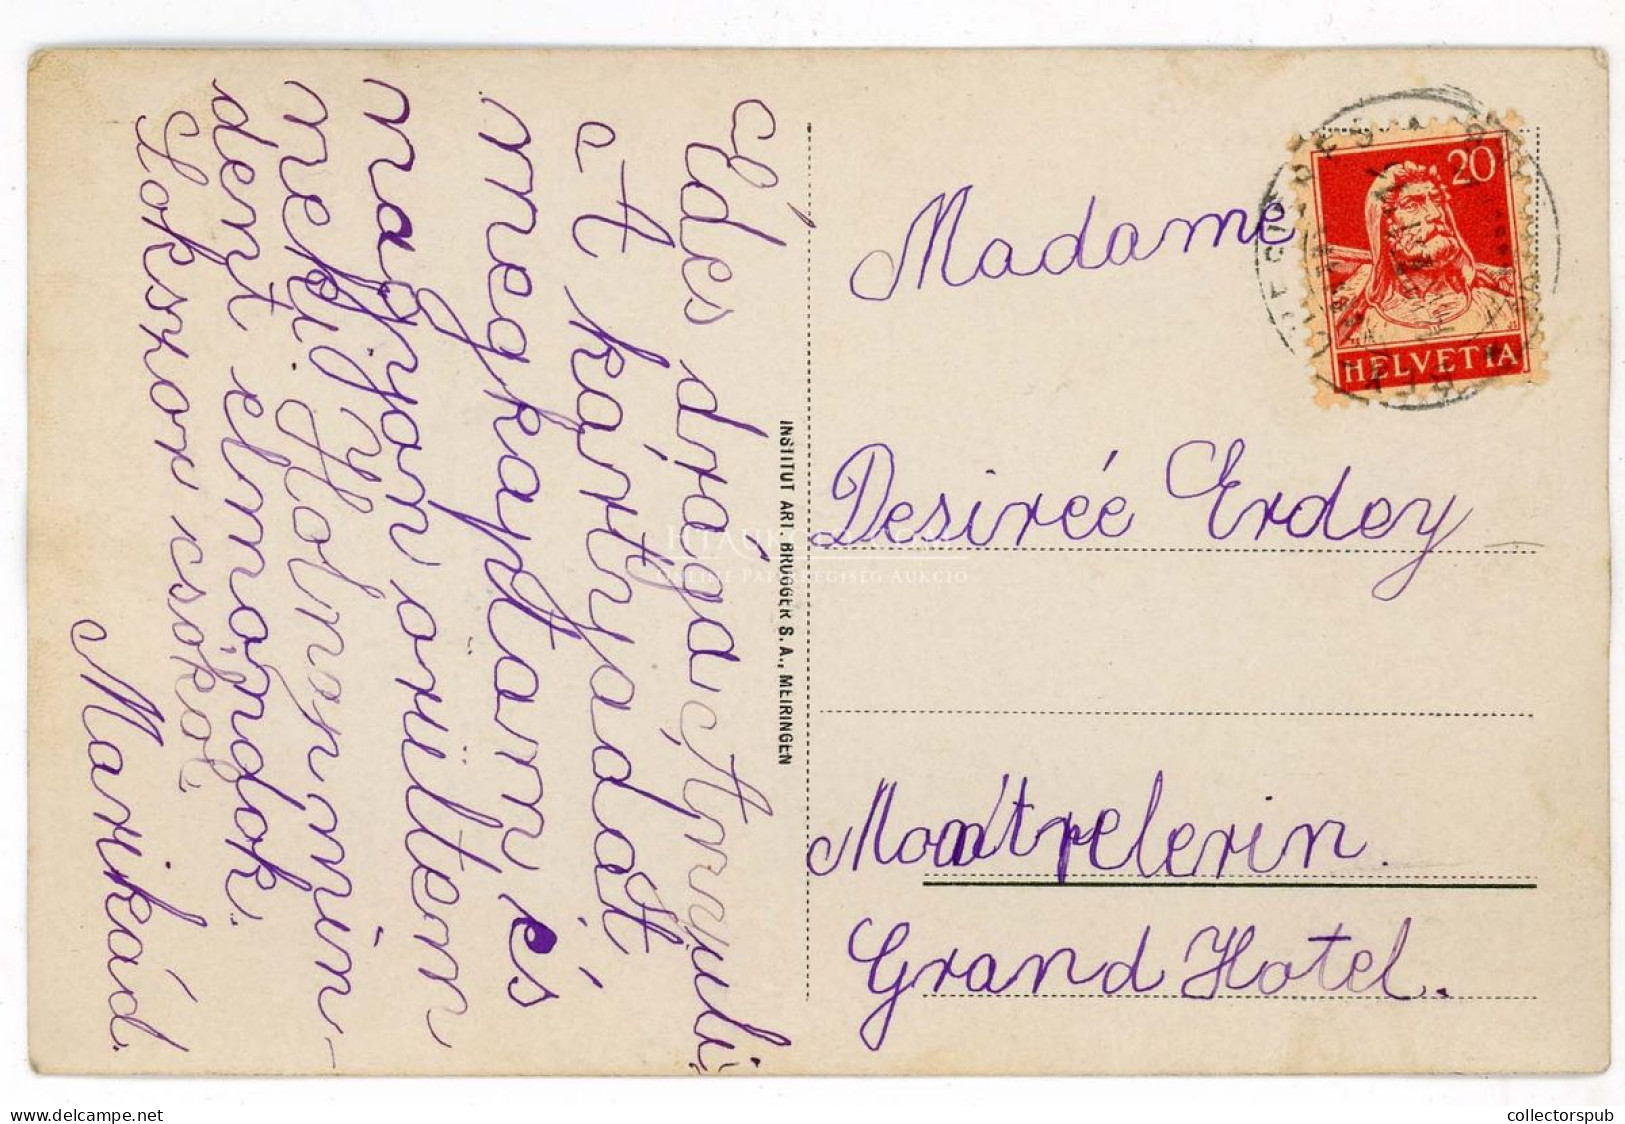 Édes drága Anyuli
A kártyádat,
megkaptam, és
nagyon örültem
neki, Holnap min-
dent elmondok.
Sokszor csókol:
Marikád.
INSTITUT ART. BRÜGGER S. A., MEIRINGEN
20
HELVETIA
Madame
Desirée Erdey
Montpelerin.
Grand Hotel.
HTAUKCIO.COM
ONLINE PAPÍRRÉGISÉG AUKCIÓ
delcampe.net
collectorspub